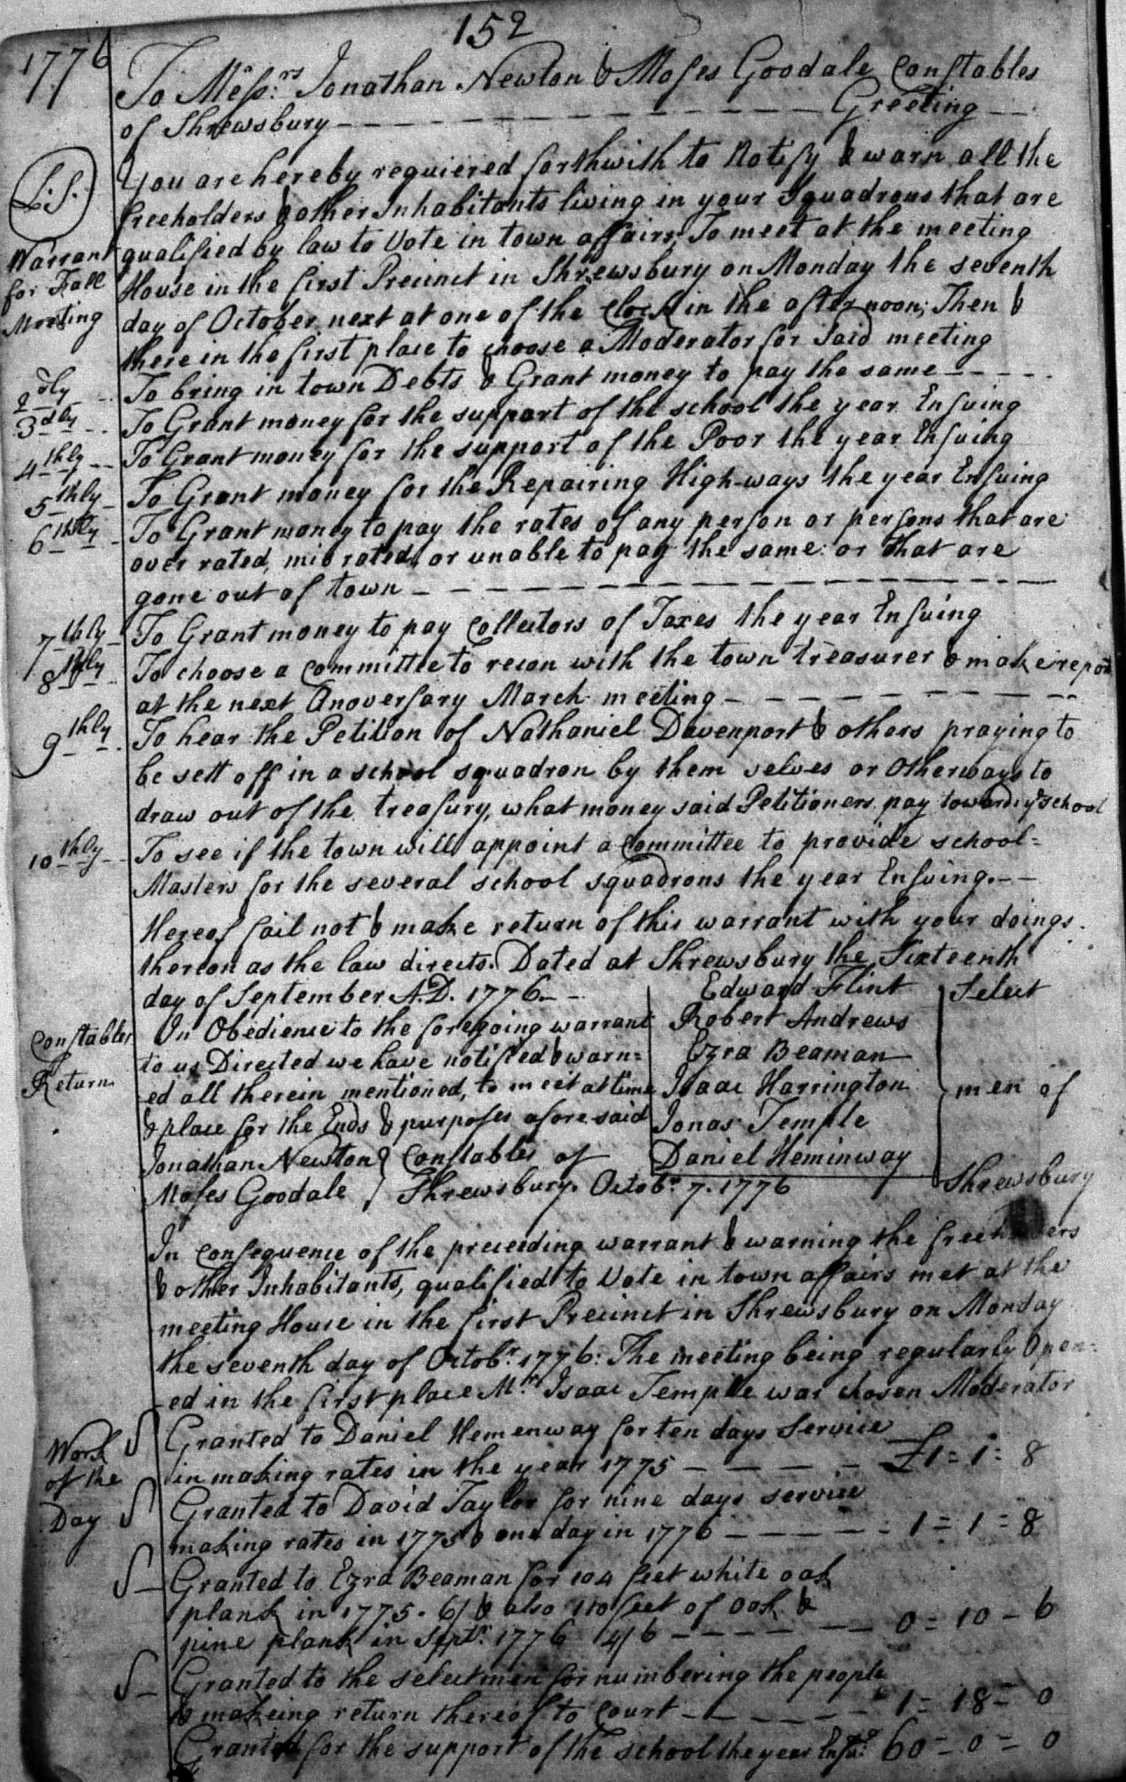 152
1776
To Messrs. Jonathan Newton & Moses Goodale Constables
of Shrewsbury — Greeting
L:S:
You are hereby requiered forthwith to Notify & warn all the
freeholders & other Inhabitants living in your Squadrons that are
Warrant for Fall Meeting
qualified by law to Vote in town affairs, To meet at the meeting
House in the first Precinct in Shrewsbury on Monday the seventh
day of October next at one of the Clock in the afternoon; Then &
there in the first place to choose a Moderator for said meeting
2dly To bring in town Debts & Grant money to pay the same
3dly To Grant money for the support of the school the year Ensuing
4thly To Grant money for the support of the Poor the year Ensuing
5thly To Grant money for the Repairing High-ways the year Ensuing
6thly To Grant money to pay the rates of any person or persons that are
over rated, mis rated, or unable to pay the same: or that are
gone out of town
7thly To Grant money to pay Collectors of Taxes the year Ensuing
8thly To choose a Committee To recon with the town treasurer & make report
at the next Anoversary March meeting
9thly To hear the Petition of Nathaniel Davenport & others praying to
be sett off in a school squadron by them selves or Otherways to
draw out of the treasury, what money said Petitioners pay toward ye school
10thly To see if the town will appoint a Committee to provide school=
Masters for the several school squadrons the year Ensuing.
Hereof fail not & make return of this warrant with your doings
thereon as the law directs. Dated at Shrewsbury the Sixteenth
day of September A.D. 1776
Edward Flint
Robert Andrews
Ezra Beaman
Isaac Harrington
Jonas Temple
Daniel Heminway
Select
men of
Shrewsbury
Constables Return
In Obedience to the foregoing warrant
to us Directed we have notified & warn=
ed all therein mentioned, to meet at time
& place for the Ends & purposes afore said
Jonathan Newton } Constables of
Moses Goodale } Shrewsbury. Octobr. 7. 1776
In consequence of the preceeding warrant & warning the freeholders
& other Inhabitants, qualified to Vote in town affairs met at the
meeting House in the first Precinct in Shrewsbury on Monday
the seventh day of Octobr. 1776: The meeting being regularly Open=
ed in the first place Mr. Isaac Temple was chosen Moderator
Work of the Day
S Granted to Daniel Hemenway for ten days Service
in making rates in the year 1775 — £1=1=8
S Granted to David Taylor for nine days service
making rates in 1775 & one day in 1776 — 1=1=8
S Granted to Ezra Beaman for 104 feet white oak
plank in 1775. 6/ & also 110 feet of oak &
pine plank in Septr. 1776 4/6 — 0=10=6
S Granted to the selectmen for numbering the people
& makeing return thereof to Court — 1=18=0
Granted for the support of the school the year Ensug. 60=0=0